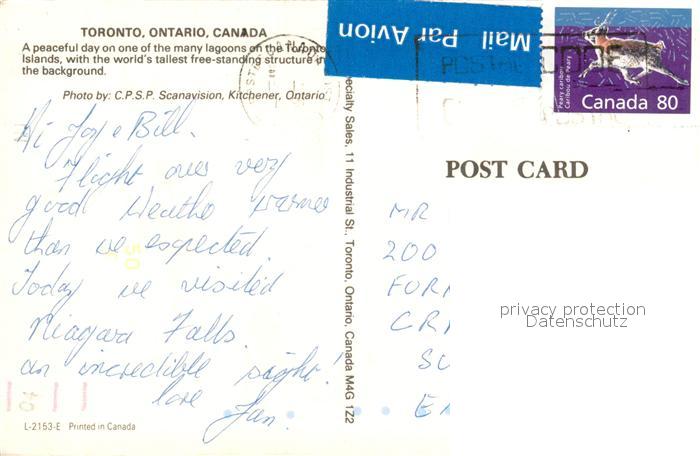 TORONTO, ONTARIO, CANADA
A peaceful day on one of the many lagoons on the Toronto
Islands, with the world's tallest free-standing structure in
the background.
Photo by: C.P.S.P. Scanavision, Kitchener, Ontario
Hi Joy & Bill.
Flight over very
good Weather warmer
than we expected.
Today we visited
Niagara Falls.
an incredible sight!
love
Jan.
04
50
L-2153-E Printed in Canada
ecialty Sales, 11 Industrial St., Toronto, Ontario, Canada M4G 1Z2
Mail Par Avion
Peary caribou
Caribou de Peary
Canada 80
POST CARD
MR
200
FOR
CR
SU
E
privacy protection
Datenschutz